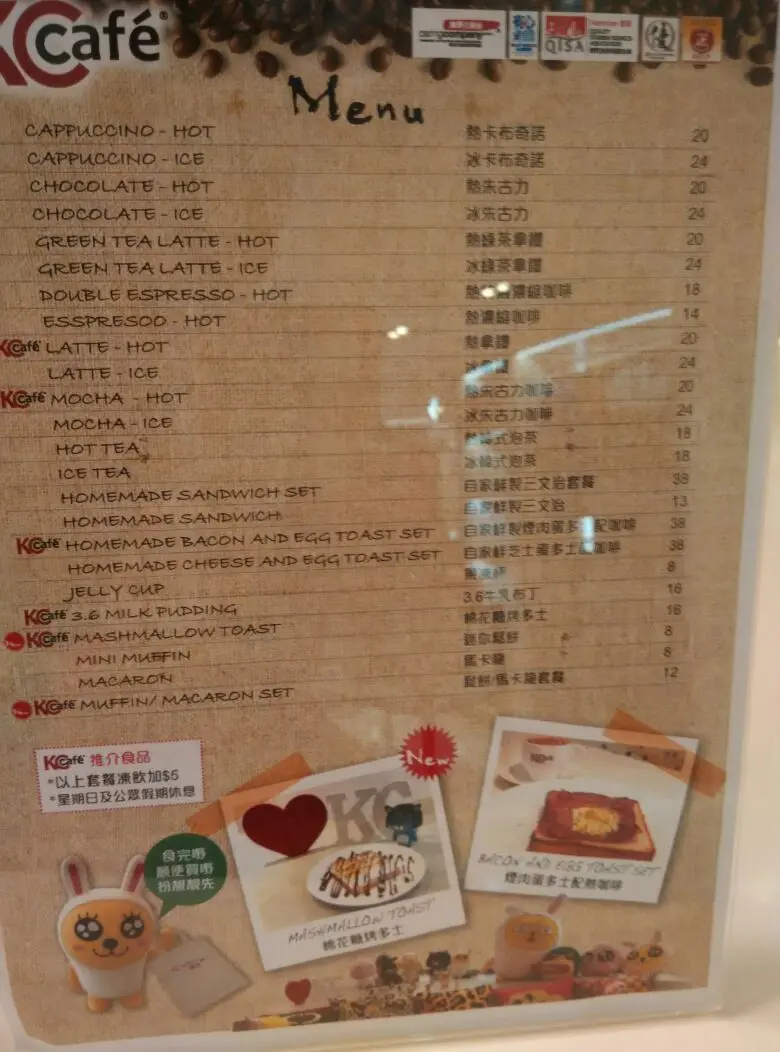 KCafé®
QTSA
Menu
CAPPUCCINO - HOT 熱卡布奇諾 20
CAPPUCCINO - ICE 冰卡布奇諾 24
CHOCOLATE - HOT 熱朱古力 20
CHOCOLATE - ICE 冰朱古力 24
GREEN TEA LATTE - HOT 熱綠茶拿鐵 20
GREEN TEA LATTE - ICE 冰綠茶拿鐵 24
DOUBLE ESPRESSO - HOT 濃縮咖啡 18
ESSPRESOO - HOT 熱濃縮咖啡 14
KCafé LATTE - HOT 熱拿鐵 20
LATTE - ICE 冰拿鐵 24
KCafé MOCHA - HOT 熱朱古力咖啡 20
MOCHA - ICE 冰朱古力咖啡 24
HOT TEA 熱韓式泡茶 18
ICE TEA 冰韓式泡茶 18
HOMEMADE SANDWICH SET 自家鮮製三文治套餐 38
HOMEMADE SANDWICH 自家鮮製三文治 13
KCafé HOMEMADE BACON AND EGG TOAST SET 自家鮮製煙肉蛋多士配咖啡 38
HOMEMADE CHEESE AND EGG TOAST SET 自家鮮芝士蛋多士配咖啡 38
JELLY CUP 8
KCafé 3.6 MILK PUDDING 3.6牛乳布丁 16
KCafé MASHMALLOW TOAST 棉花糖烤多士 16
MINI MUFFIN 迷你鬆餅 8
MACARON 馬卡龍 8
KCafé MUFFIN/ MACARON SET 鬆餅/馬卡龍套餐 12
KCafé 推介食品
*以上套餐凍飲加$5
*星期日及公眾假期休息
New
食完嘢
順便買嘢
扮靚靚先
KC
MASHMALLOW TOAST
棉花糖烤多士
BACON AND EGG TOAST SET
煙肉蛋多士配熱咖啡